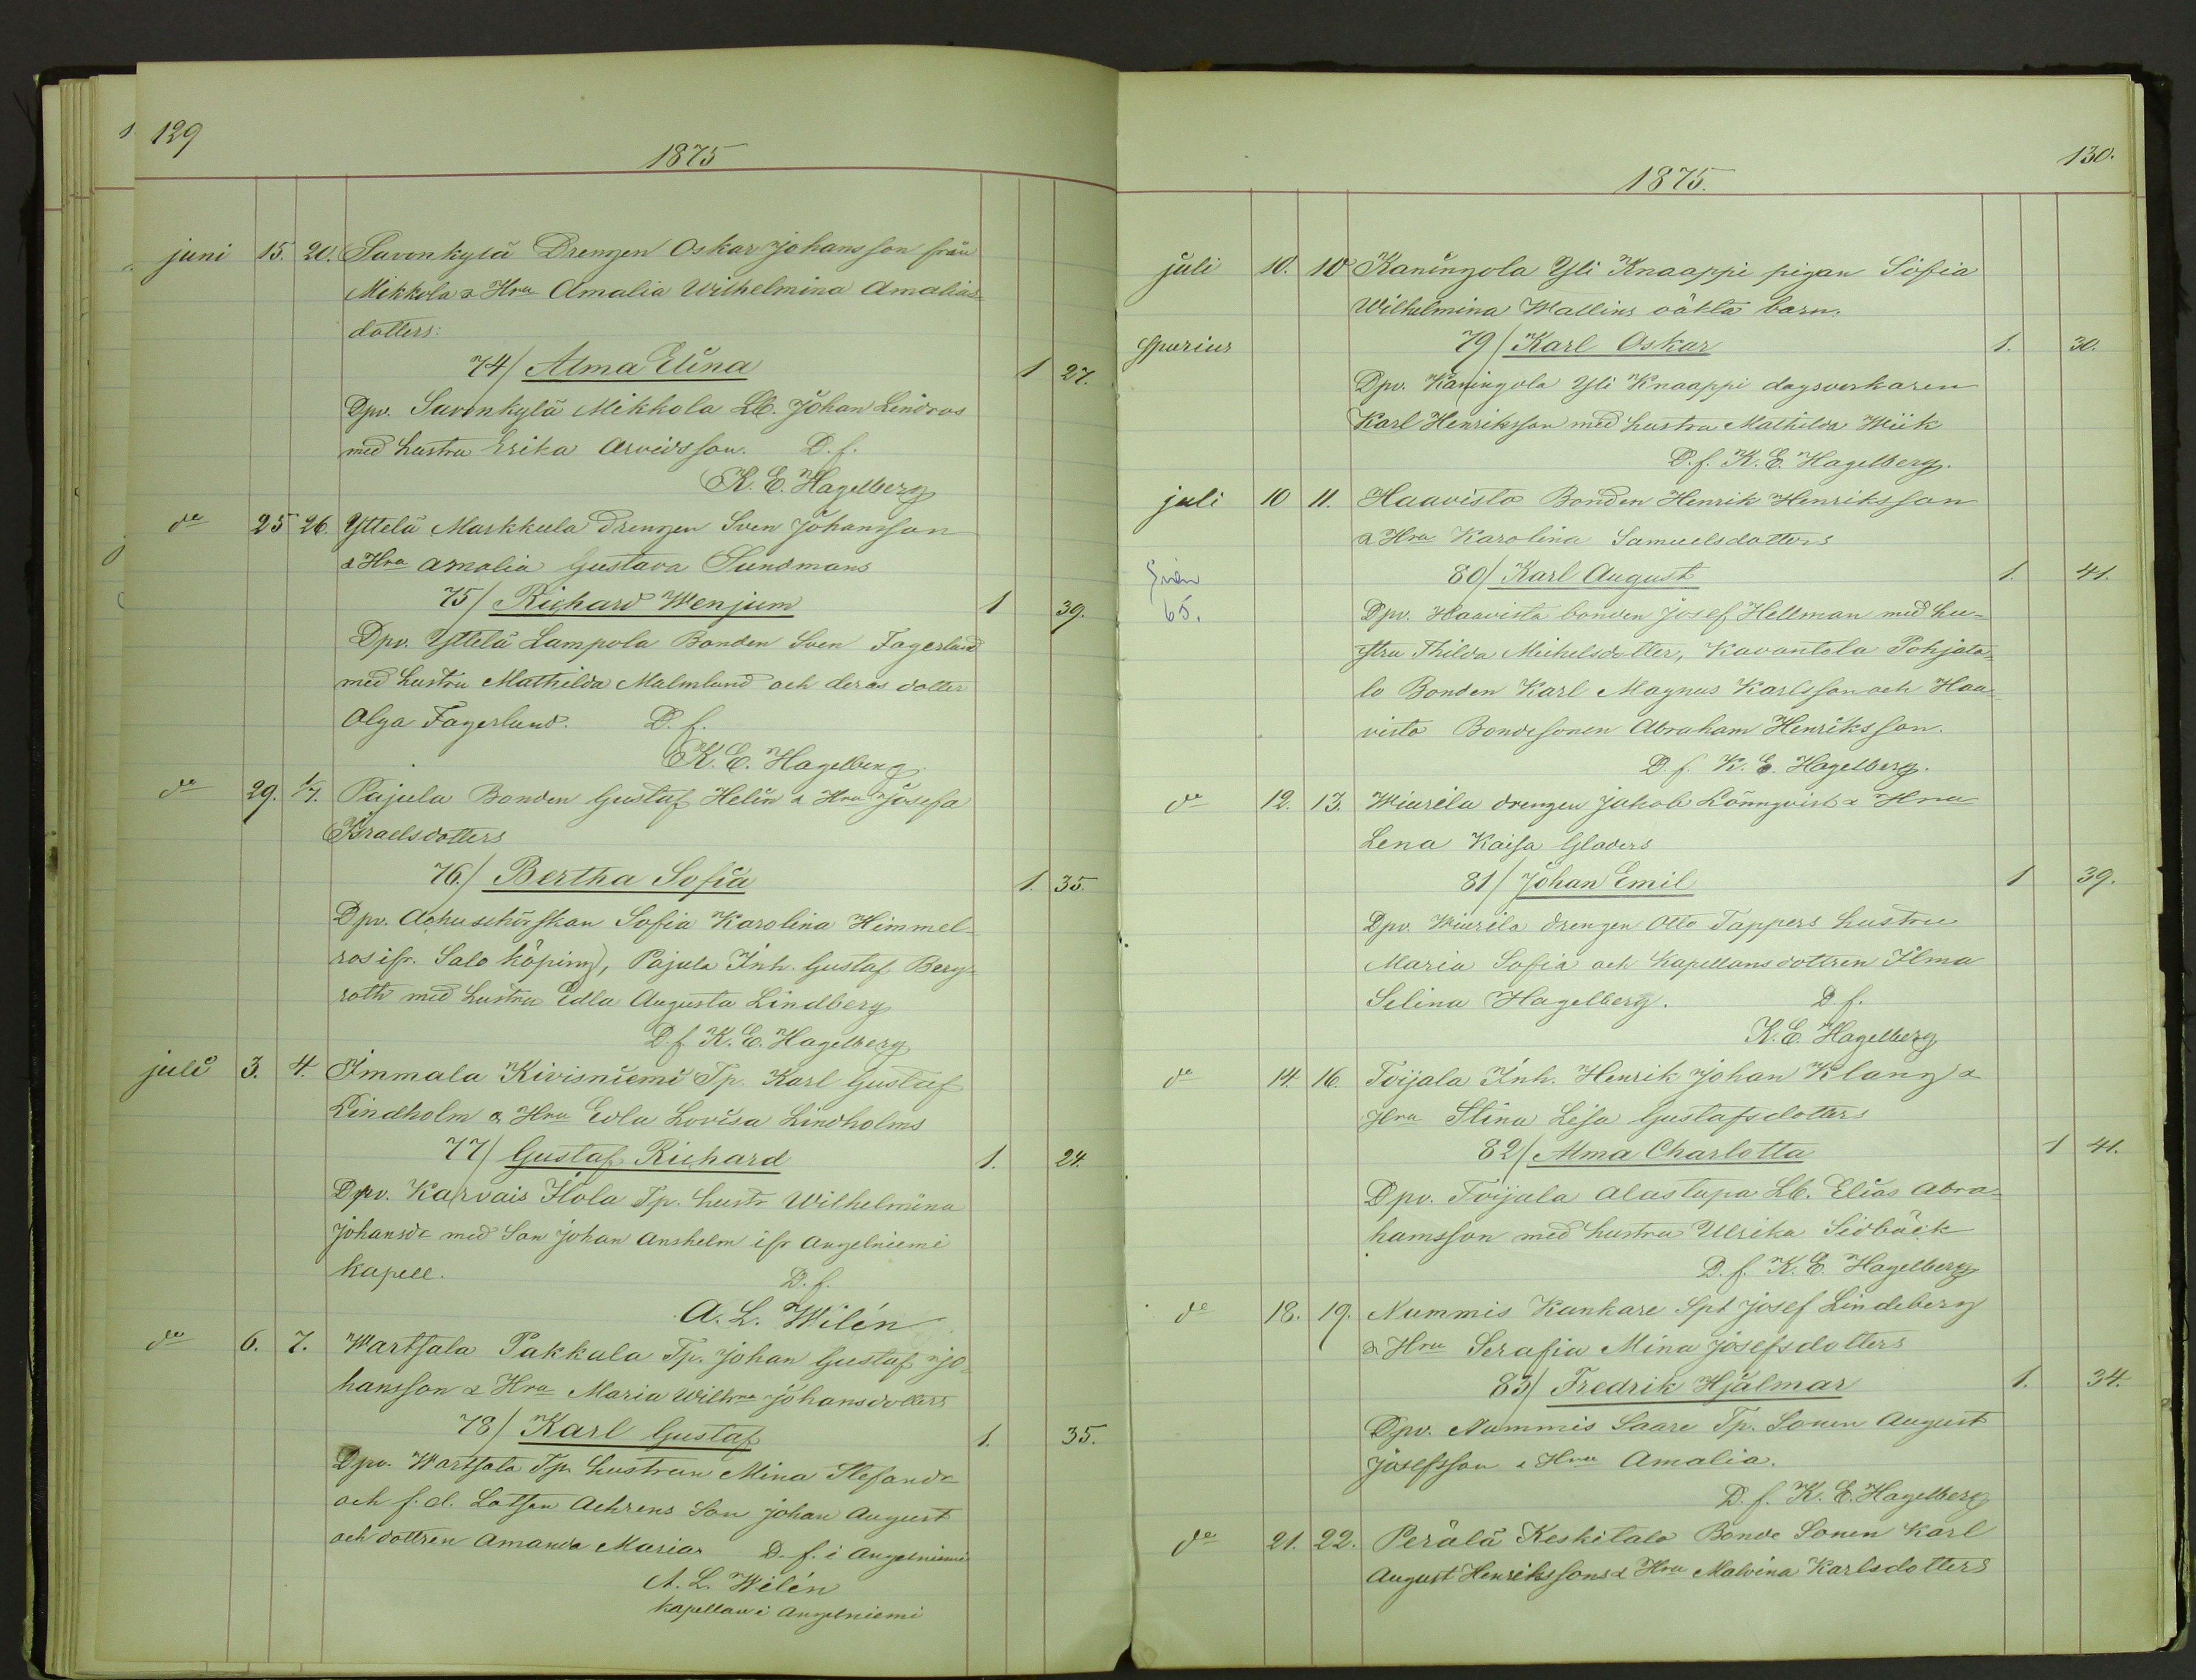 129
1875
juni 15. 20. Savonkylä Drengen Oskar Johansson från
Mikkola & Hru Amalia Wilhelmina Amalias-
dotters:
74/ Alma Elina 1 27.
Dpv. Savonkylä Mikkola Lb. Johan Lindros
med hustru Erika Arvidsson. D. f.
K. E. Hagelberg
do 25 26. Yttelä Markkula Drengen Sven Johansson
& Hru Amalia Gustava Sundmans
75/ Richard Wenjum 1 39.
Dpv. Yttelä Lampola Bonden Sven Fagerlund
med hustru Mathilda Malmlund och deras dotter
Olga Fagerlund. D. f.
K. E. Hagelberg
do 29. 1/7. Pajula Bonden Gustaf Helin & Hru Josefa
Israelsdotters
76./ Bertha Sofia 1. 35.
Dpv. Sofia Karolina Himmel-
ros ifr. Salo köping), Pajula Inh. Gustaf Berg-
roth med hustru Edla Augusta Lindberg
D. f. K. E. Hagelberg
juli 3. 4. Immala Kivisniemi Tp. Karl Gustaf
Lindholm & Hru Edla Lovisa Lindholms
77/ Gustaf Richard 1. 24.
Dpv. Karvais Tp. hustr Wilhelmina
Johansdr med Son Johan Anshelm ifr Angelniemi
kapell. D. f.
A. L. Wilén
do 6. 7. Wartsala Pakkala Tp. Johan Gustaf Jo-
hansson & Hru Maria Wilhna Johansdotters
78/ Karl Gustaf 1. 35.
Dpv. Wartsala Tp. hustrun Mina Stefansdr
och f. d. Lotsen Achrens Son Johan August
och dottren Amanda Maria D. f. i Angelniemi
A. L. Wilén
kapellan i Angelniemi
130.
1875.
juli 10. 10 Kaningola Yli Knaappi pigan Sofia
Wilhelmina Wallins oäkta barn.
Spurius 79/ Karl Oskar 1. 30.
Dpv. Kaningola Yli Knaappi dagsverkaren
Karl Henriksson med hustru Mathilda Wiik
D. f. K. E. Hagelberg.
juli 10 11. Haavisto Bonden Henrik Henriksson
& Hru Karolina Samuelsdotters
80/ Karl August 1. 41.
65. Dpv. Haavisto bonden Josef Hellman med hu-
stru Thilda Michelsdotter, Kavantola Pohjata-
lo Bonden Karl Magnus Karlsson och Haa-
visto Bondesonen Abraham Henriksson.
D. f. K. E. Hagelberg.
do 12. 13. Wiurila drengen Jakob Lönnqvist & Hru
Lena Kaisa Gladers
81/ Johan Emil 1 39.
Dpv. Wiurila drengen Otto Tappers hustru
Maria Sofia och kapellansdottren Ilma
Selina Hagelberg. D. f.
K. E. Hagelberg
do 14. 16. Toijala Inh. Henrik Johan Klang &
Hru Stina Lisa Gustafsdotters
82/ Alma Charlotta 1 41.
Dpv. Toijala Alastupa Lb. Elias Abra-
hamsson med hustru Ulrika Sidbäck
D. f. K. E. Hagelberg
do 18. 19. Nummis Kankare Spt Josef Lindeberg
& Hru Serafia Mina Josefsdotters
83/ Fredrik Hjalmar 1. 34.
Dpv. Nummis Saare Tp. Sonen August
Josefsson & Hru Amalia.
D. f. K. E. Hagelberg
do 21. 22. Perälä Keskitalo Bonde Sonen Karl
August Henrikssons & Hru Malvina Karlsdotters